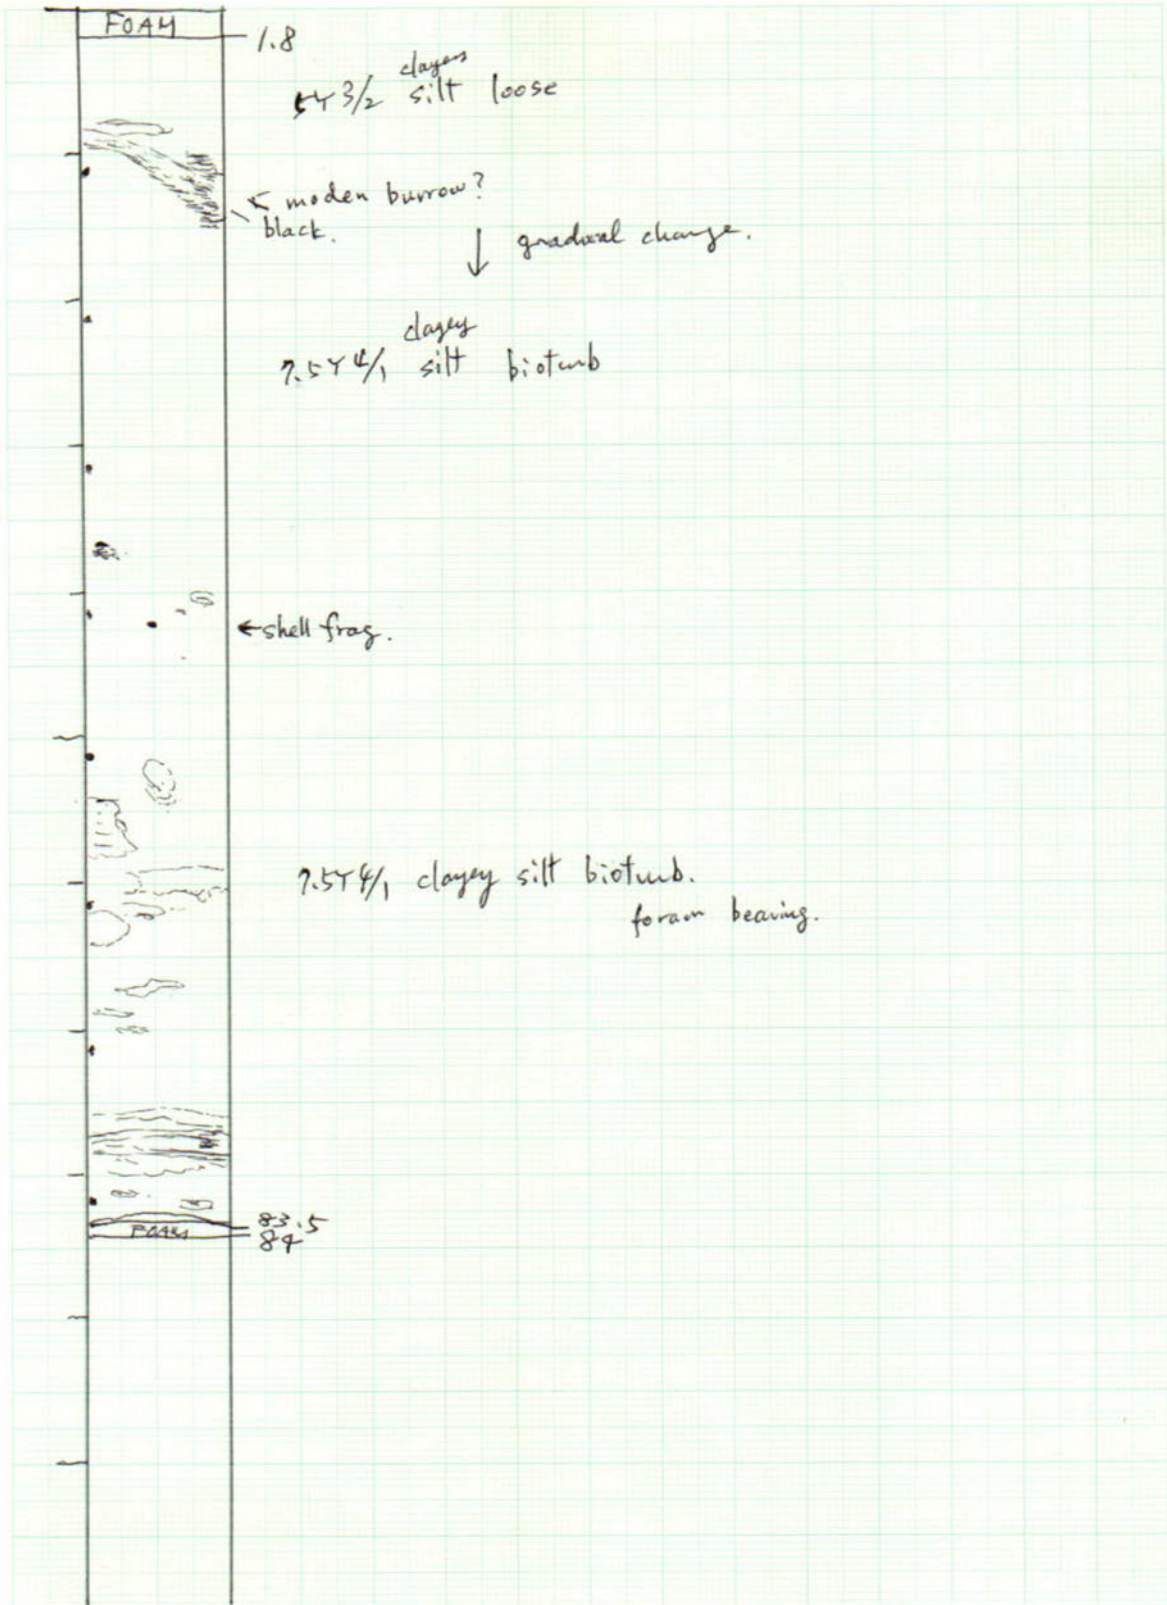 FOAM
1.8
clayey
5Y 3/2 silt loose
← moden burrow?
black.
↓ gradual change.
clayey
7.5Y 4/1 silt bioturb
←shell frag.
7.5Y 4/1 clayey silt bioturb.
foram bearing.
83.5
FOAM
84